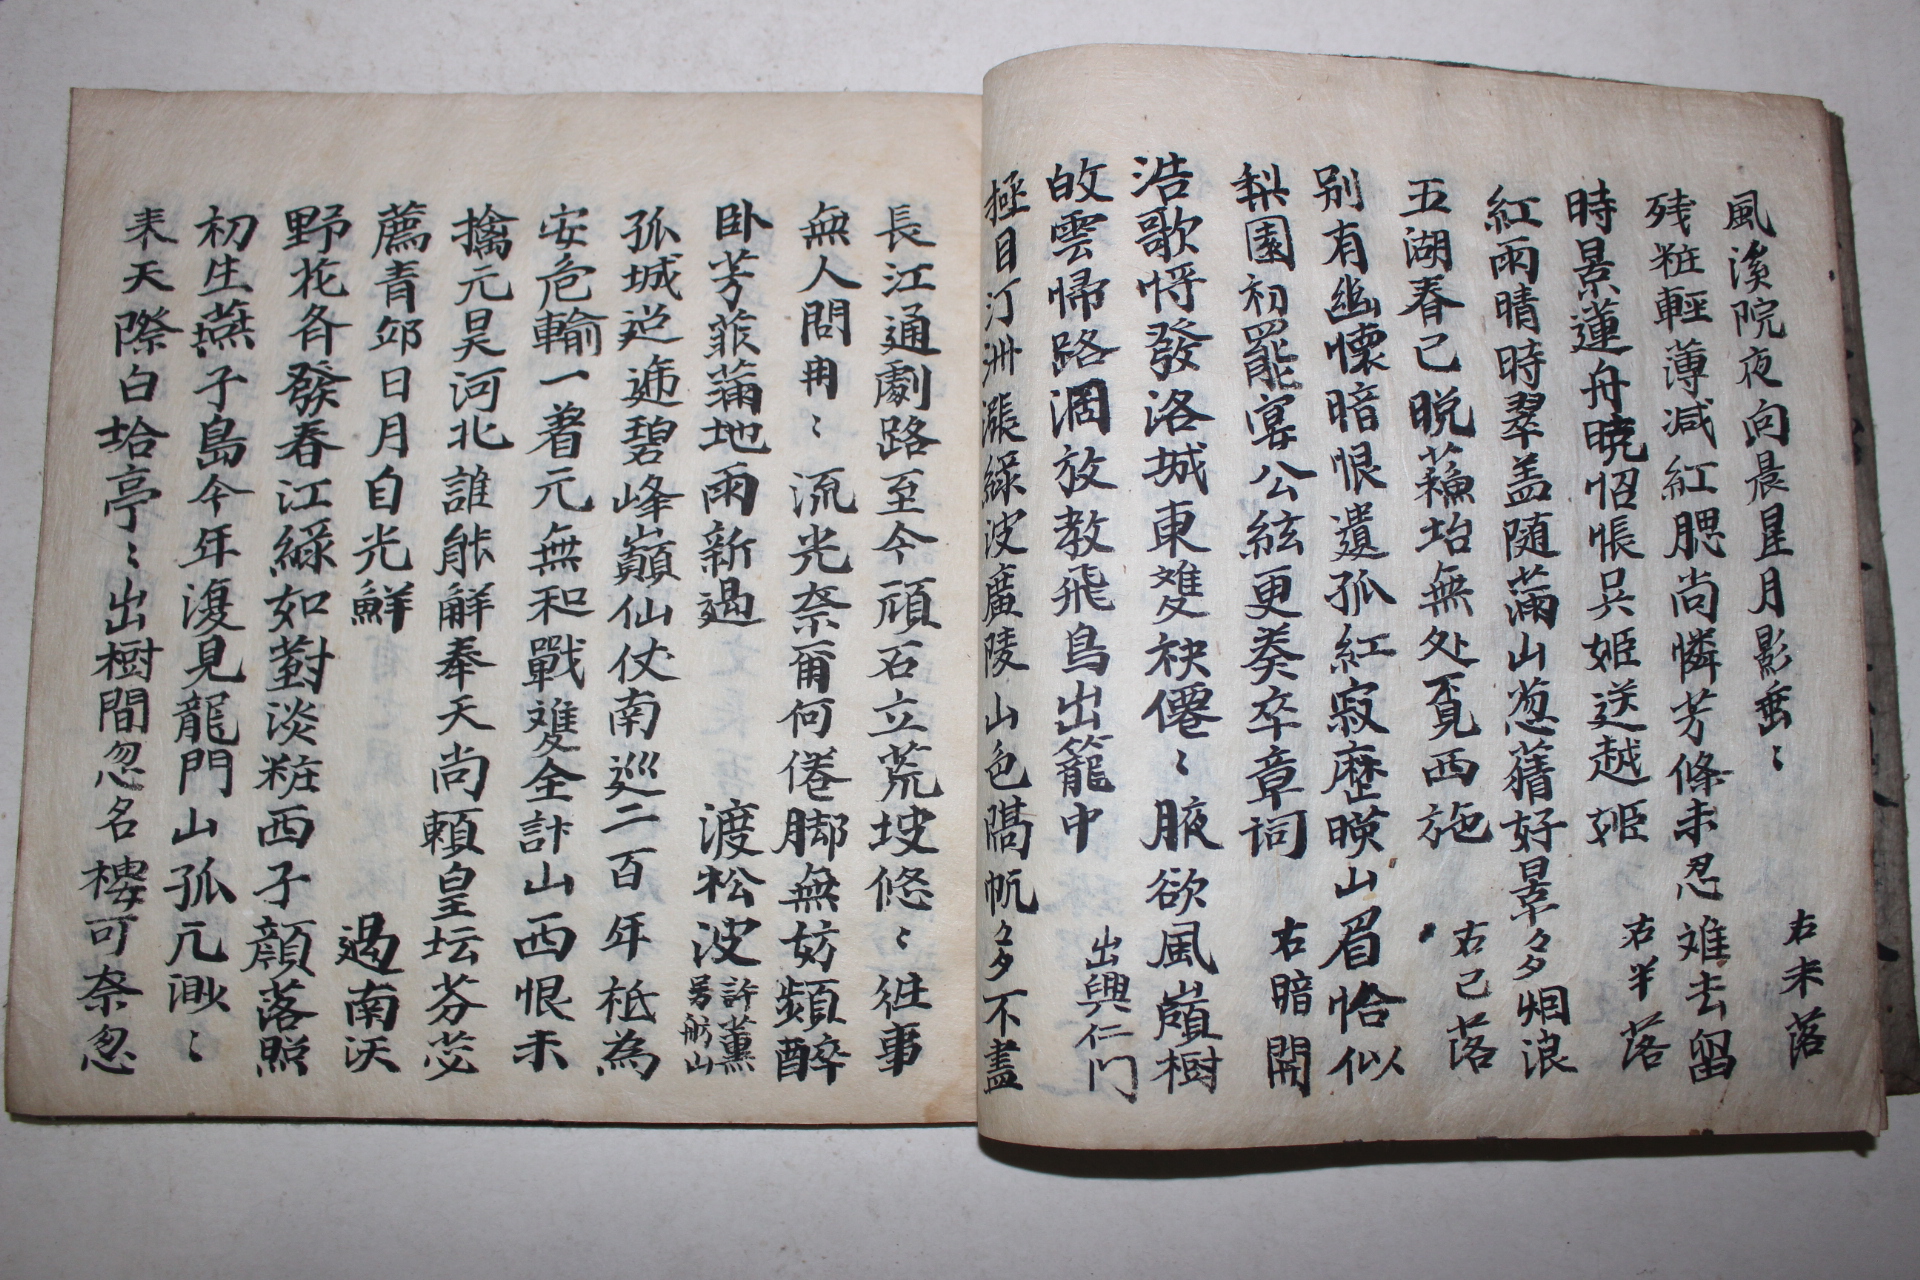 風溪院夜向晨星月影垂〻　右未落
残粧輕薄减紅腮尚憐芳條未忍難去留
時景蓮舟曉怊悵吳姬送越姬　右半落
紅雨晴時翠盖随滿山葱蒨好景多烟浪
五湖春已晩蘓坮無处覔西施　右已落
别有幽懷暗恨遺孤紅寂歴暎山眉恰似
梨園初罷宴公絃更奏卒章詞　右暗開
浩歌㪍發洛城東雙袂僊〻腋欲風巔樹
㿟雲帰路濶放教飛鳥出籠中　出興仁門
極目汀洲漲綠波廣陵山色隔帆多不盡
長江通劇路至今頑石立荒坡悠〻徃事
無人問冉〻流光奈爾何倦脚無妨頻醉
卧芳菲蒲地雨新過　渡松波許薰号舫山
孤城迢遞碧峰巓仙仗南巡二百年袛為
安危輸一着元無和戰雙全計山西恨未
擒元昊河北誰能解奉天尚頼皇坛芬苾
薦青邱日月自光鮮　過南沃
野花各發春江綠如對淡粧西子顔落照
初生燕子島今年復見龍門山孤兀渺〻
来天際白坮亭〻出樹間忽名樓可奈忽